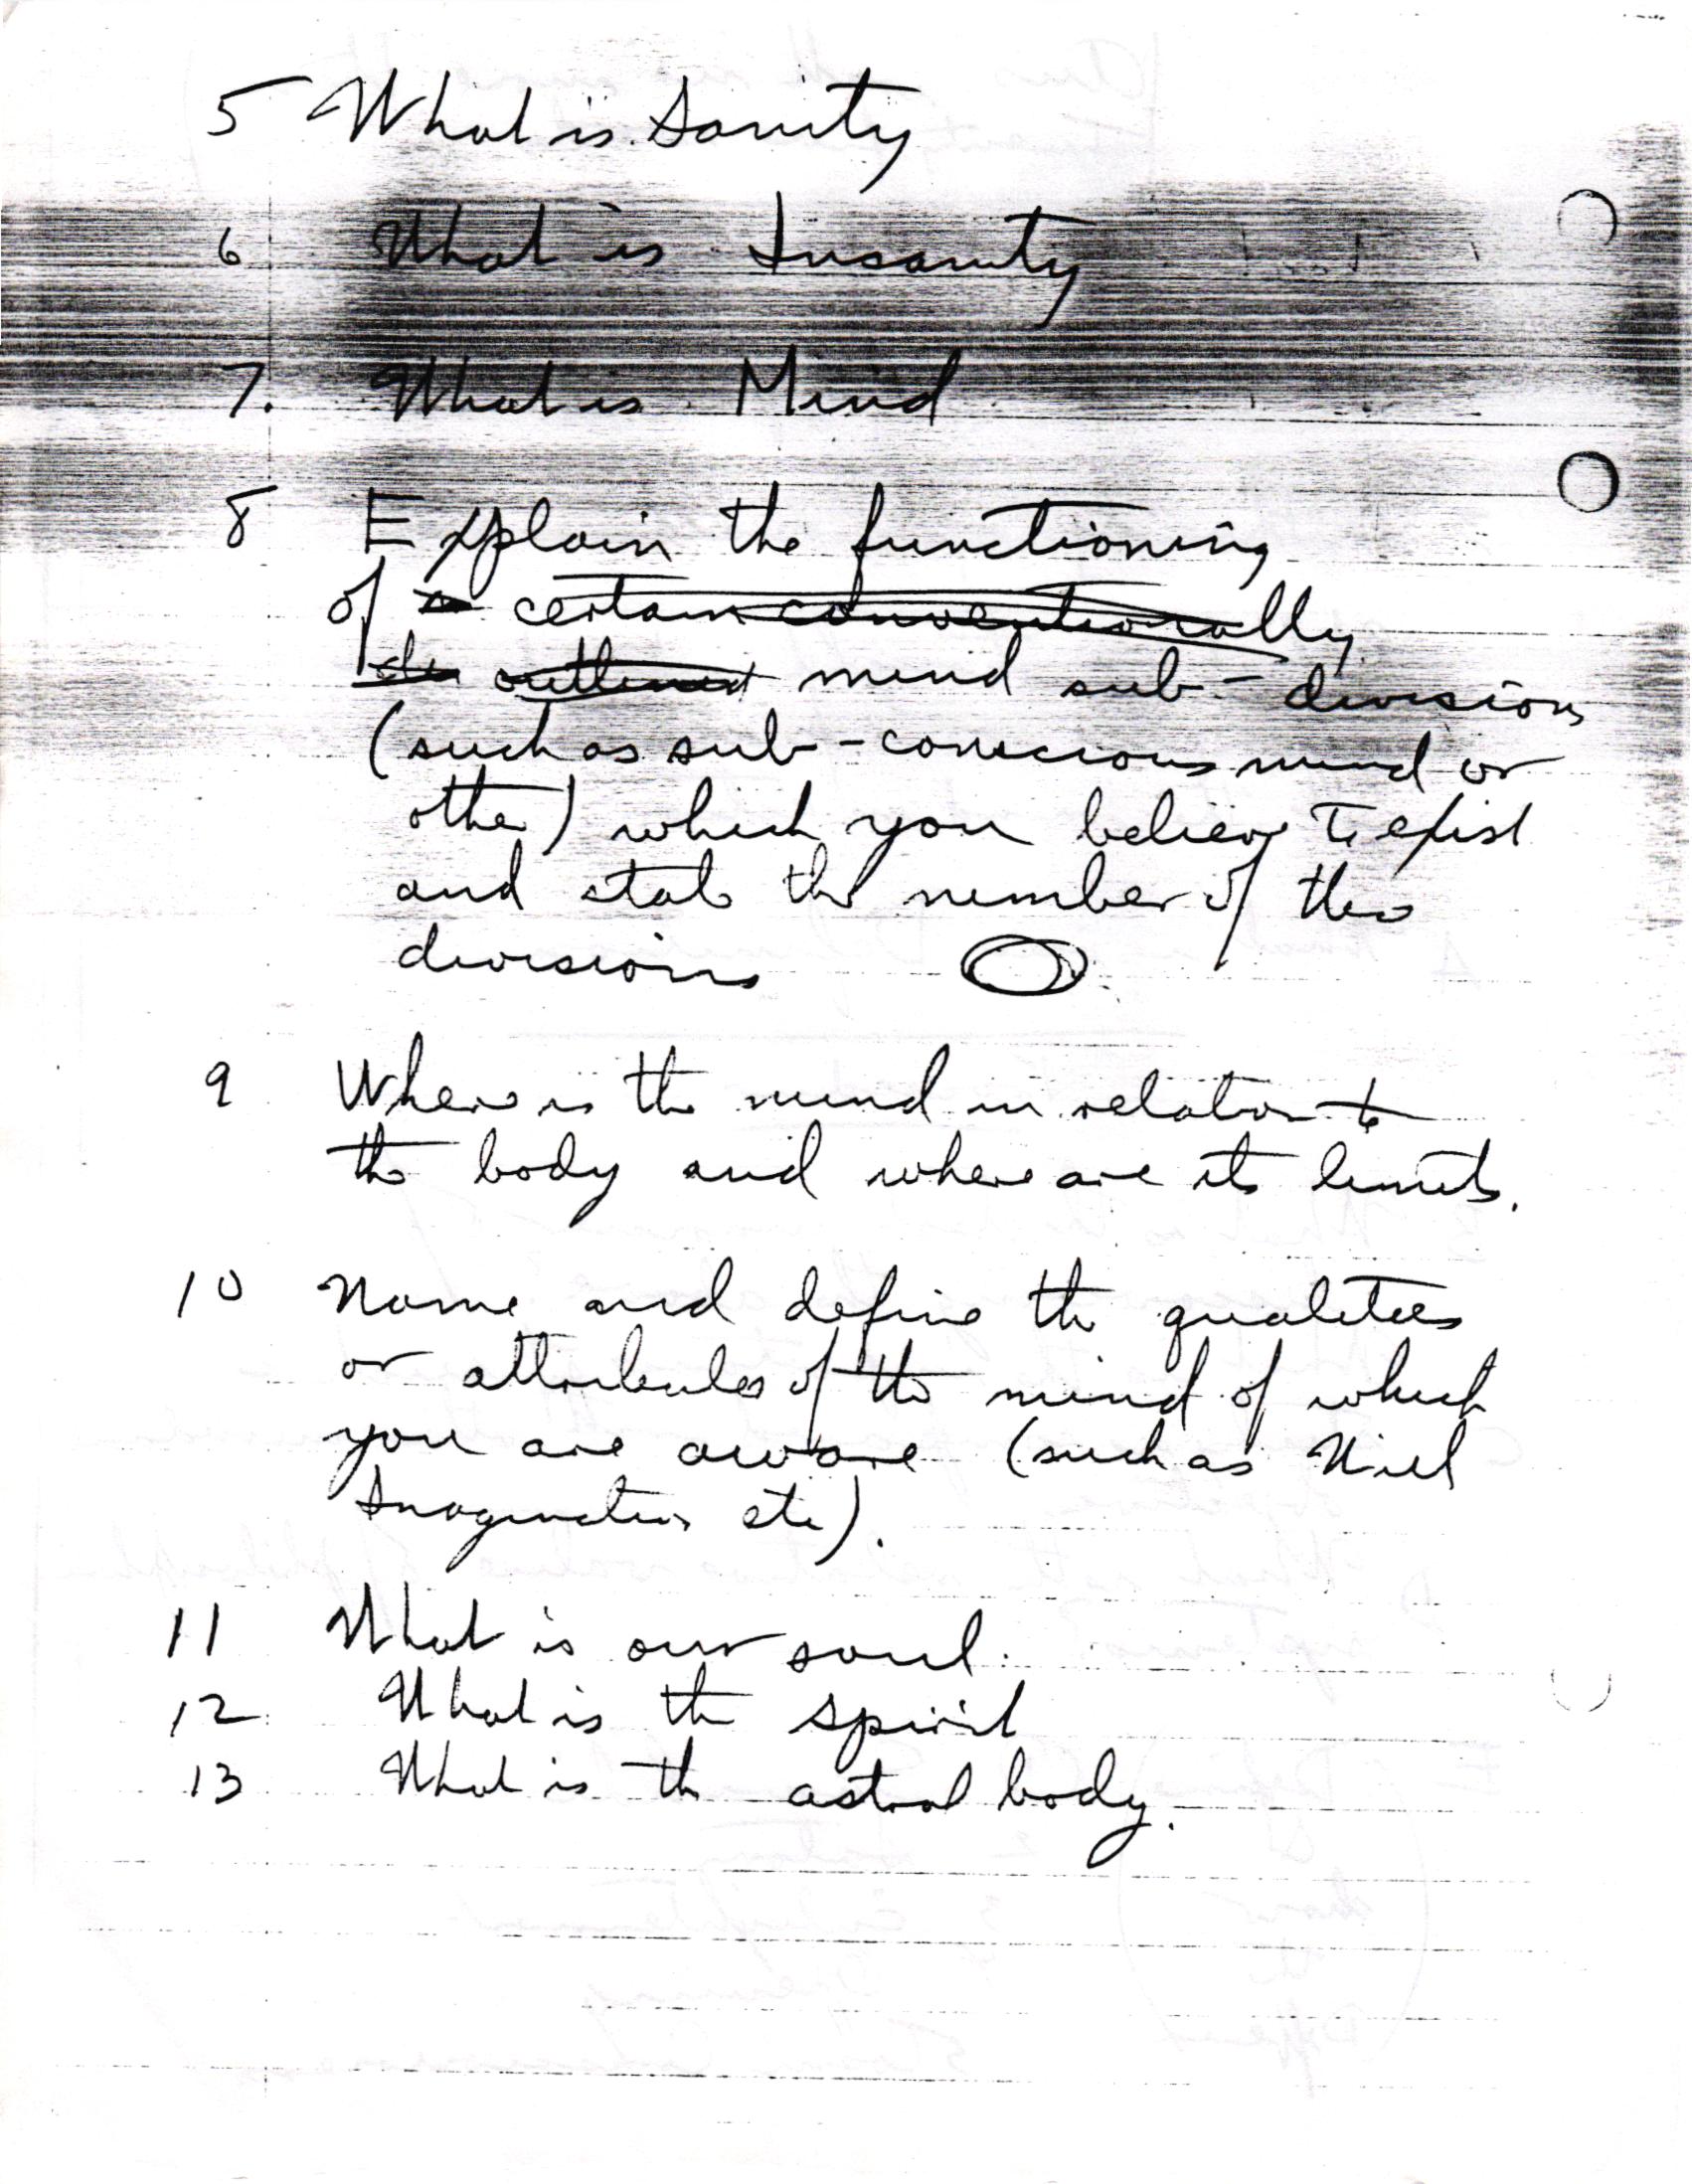 5 What is Sanity
6 What is Insanity
7. What is Mind
8 Explain the functioning
of certain conventionally
outlined mind sub-divisions
(such as sub-conscious mind or
other) which you believe to exist
and state the number of these
divisions
9 Where is the mind in relation to
the body and where are its limits.
10 Name and define the qualities
or attributes of the mind of which
you are aware (such as Will
Imagination etc).
11 What is our soul.
12 What is the spirit
13 What is the astral body.